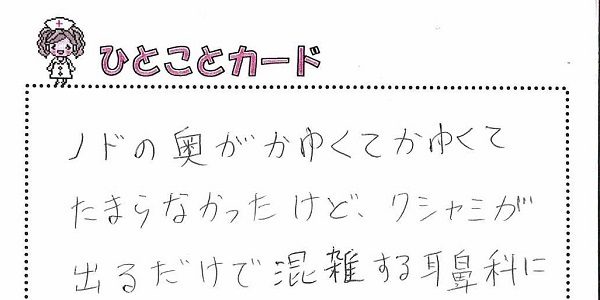 ひとことカード
ノドの奥がかゆくてかゆくて
たまらなかったけど、クシャミが
出るだけで混雑する耳鼻科に